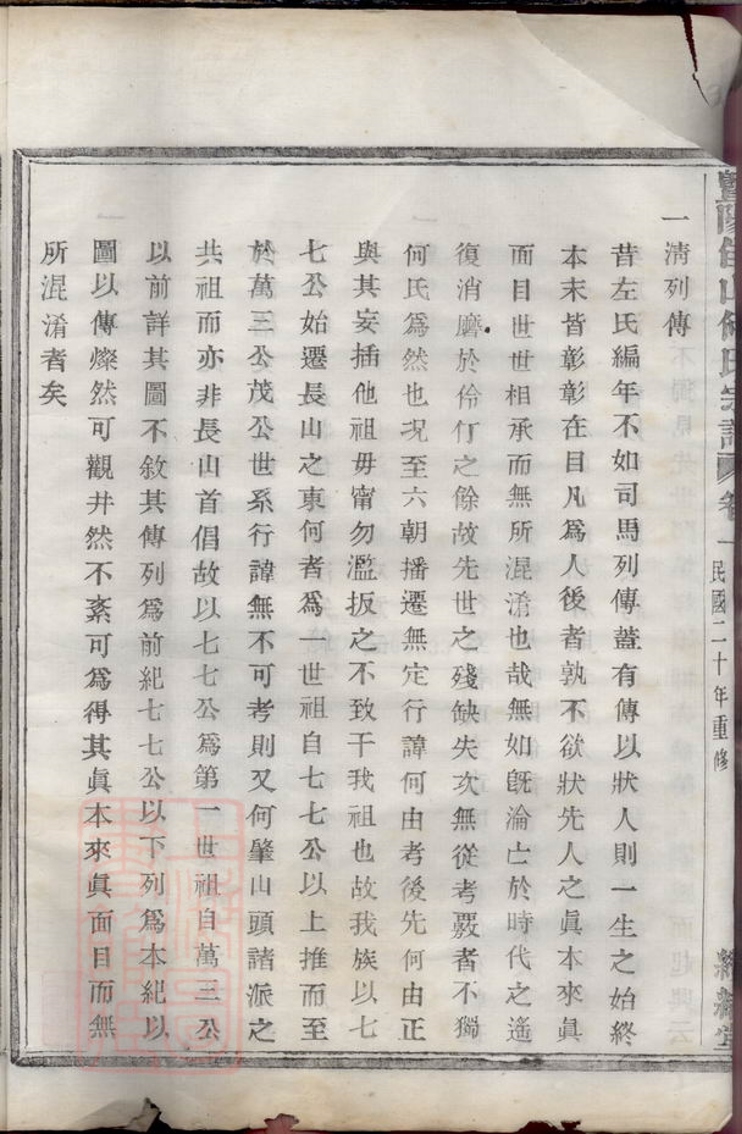 暨陽
山何氏宗譜
卷一
民國二十年重修
一清列傳
昔左氏編年不如司馬列傳蓋有傳以狀人則一生之始終
本末皆彰彰在目凡爲人後者孰不欲狀先人之眞本來眞
面目世世相承而無所混淆也哉無如旣淪亡於時代之遙
復消磨於伶仃之餘故先世之殘缺失次無從考覈者不獨
何氏爲然也况至六朝播遷無定行諱何由考後先何由正
與其妄插他祖毋甯勿濫扳之不致干我祖也故我族以七
七公始遷長山之東何者爲一世祖自七七公以上推而至
於萬三公茂公世系行諱無不可考則又何肇山頭諸派之
共祖而亦非長山首倡故以七七公爲第一世祖自萬三公
以前詳其圖不敘其傳列爲前紀七七公以下列爲本紀以
圖以傳燦然可觀井然不紊可爲得其眞本來眞面目而無
所混淆者矣